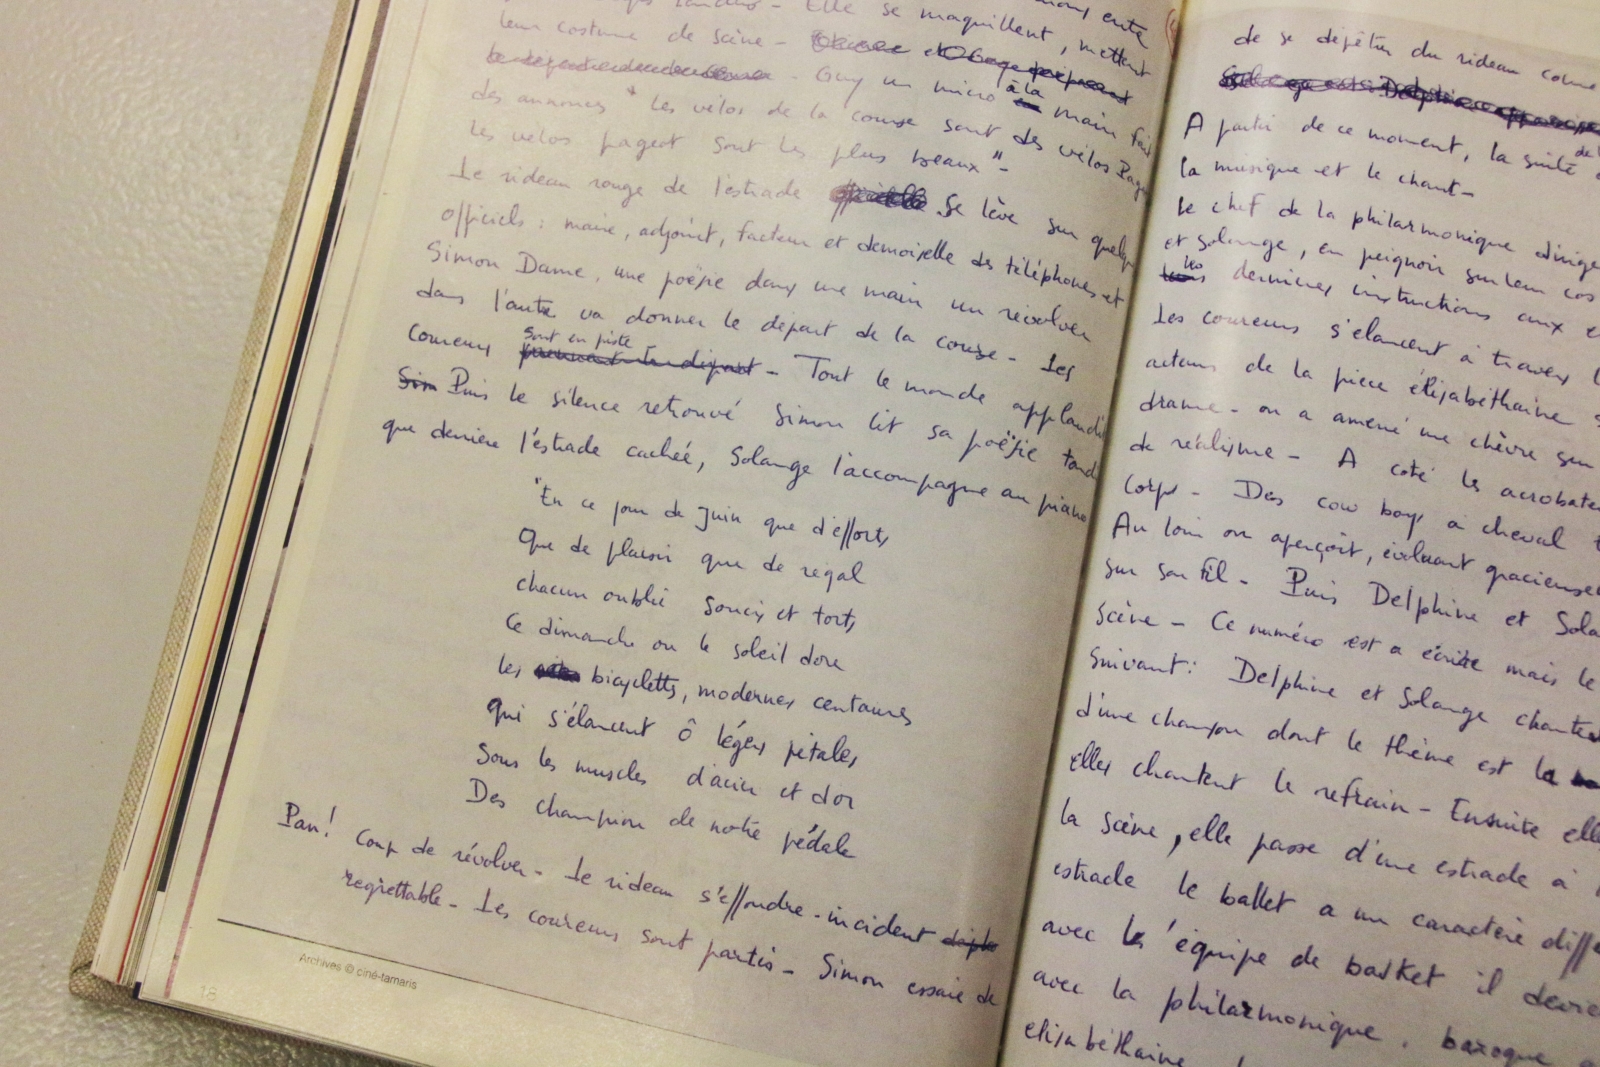 Elle se maquillent, mettent
leur costume de scène -
- Guy un micro à la main fait
des annonces " les vélos de la course sont des vélos Page
les vélos pageot sont les plus beaux" -
Le rideau rouge de l'estrade officielle se lève sur quelqu
officiels : maire, adjoint, facteur et demoiselle des téléphones et
Simon Dame, une poësie dans une main un révolver
dans l'autre va donner le départ de la course - Les
coureurs prennent le départ sont en piste - Tout le monde applaudi
Sim Puis le silence retrouvé Simon lit sa poësie tandi
que derrière l'estrade cachée, Solange l'accompagne au piano
"En ce jour de Juin que d'efforts
Que de plaisir que de régal
chacun oublie soucis et torts
Ce dimanche ou le soleil dore
les bicyclettes, modernes centaures
qui s'élancent ô légers pétales
Sous les muscles d'acier et d'or
Des champion de notre pédale
Pan! Coup de révolver - Le rideau s'effondre - incident déplo
regrettable - Les coureurs sont partis - Simon essaie de
Archives © ciné-tamaris
18
de se dépêtrer du rideau comme
A partir de ce moment, la suite de
la musique et le chant -
Le chef de la philarmonique dirige
et Solange, en peignoir sur leur cos
les dernières instructions aux e
Les coureurs s'élancent à travers l
acteurs de la pièce élisabéthaine s
drame - on a amené une chèvre sur
de réalisme - A coté les acrobate
corps - Des cow boys à cheval t
Au loin on aperçoit, évoluant gracieuse
sur son fil - Puis Delphine et Sola
scène - Ce numéro est a écrire mais le
suivant : Delphine et Solange chantent
d'une chanson dont le thème est la
elles chantent le refrain - Ensuite elle
la scène, elle passe d'une estrade à l
estrade le ballet a un caractère diffé
avec l'équipe de basket il devie
avec la philarmonique, baroque a
elisabéthaine